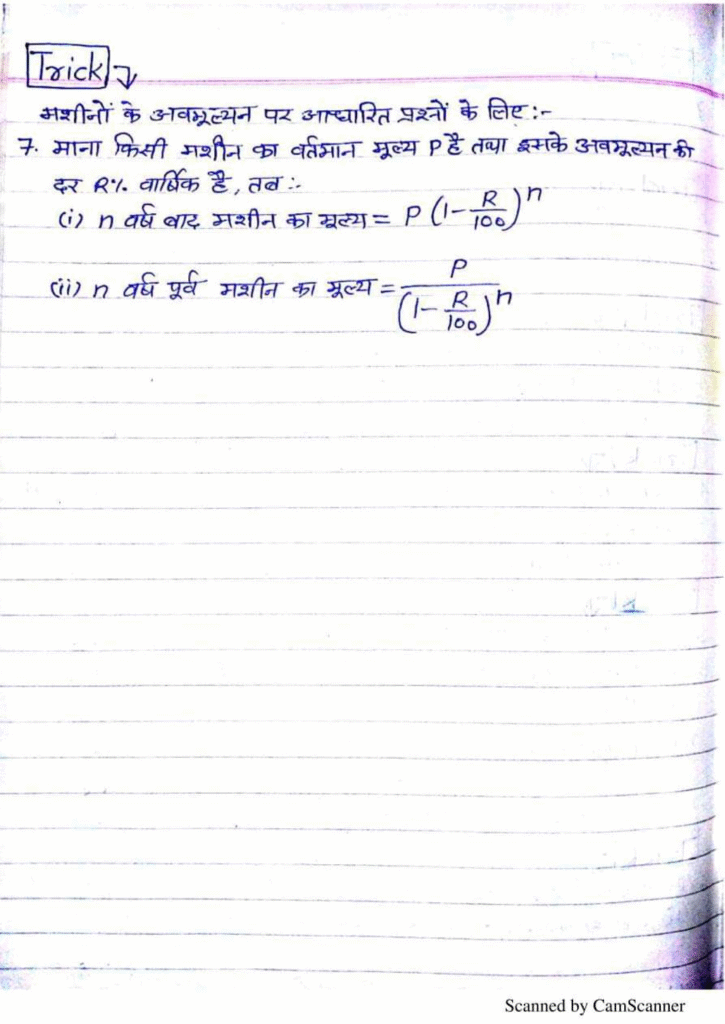 Trick
मशीनों के अवमूल्यन पर आधारित प्रश्नों के लिए :-
7. माना किसी मशीन का वर्तमान मूल्य P है तथा इसके अवमूल्यन की
दर R% वार्षिक है, तब :-
(i) n वर्ष बाद मशीन का मूल्य = P (1 - R/100)^n
(ii) n वर्ष पूर्व मशीन का मूल्य = P / (1 - R/100)^n
Scanned by CamScanner